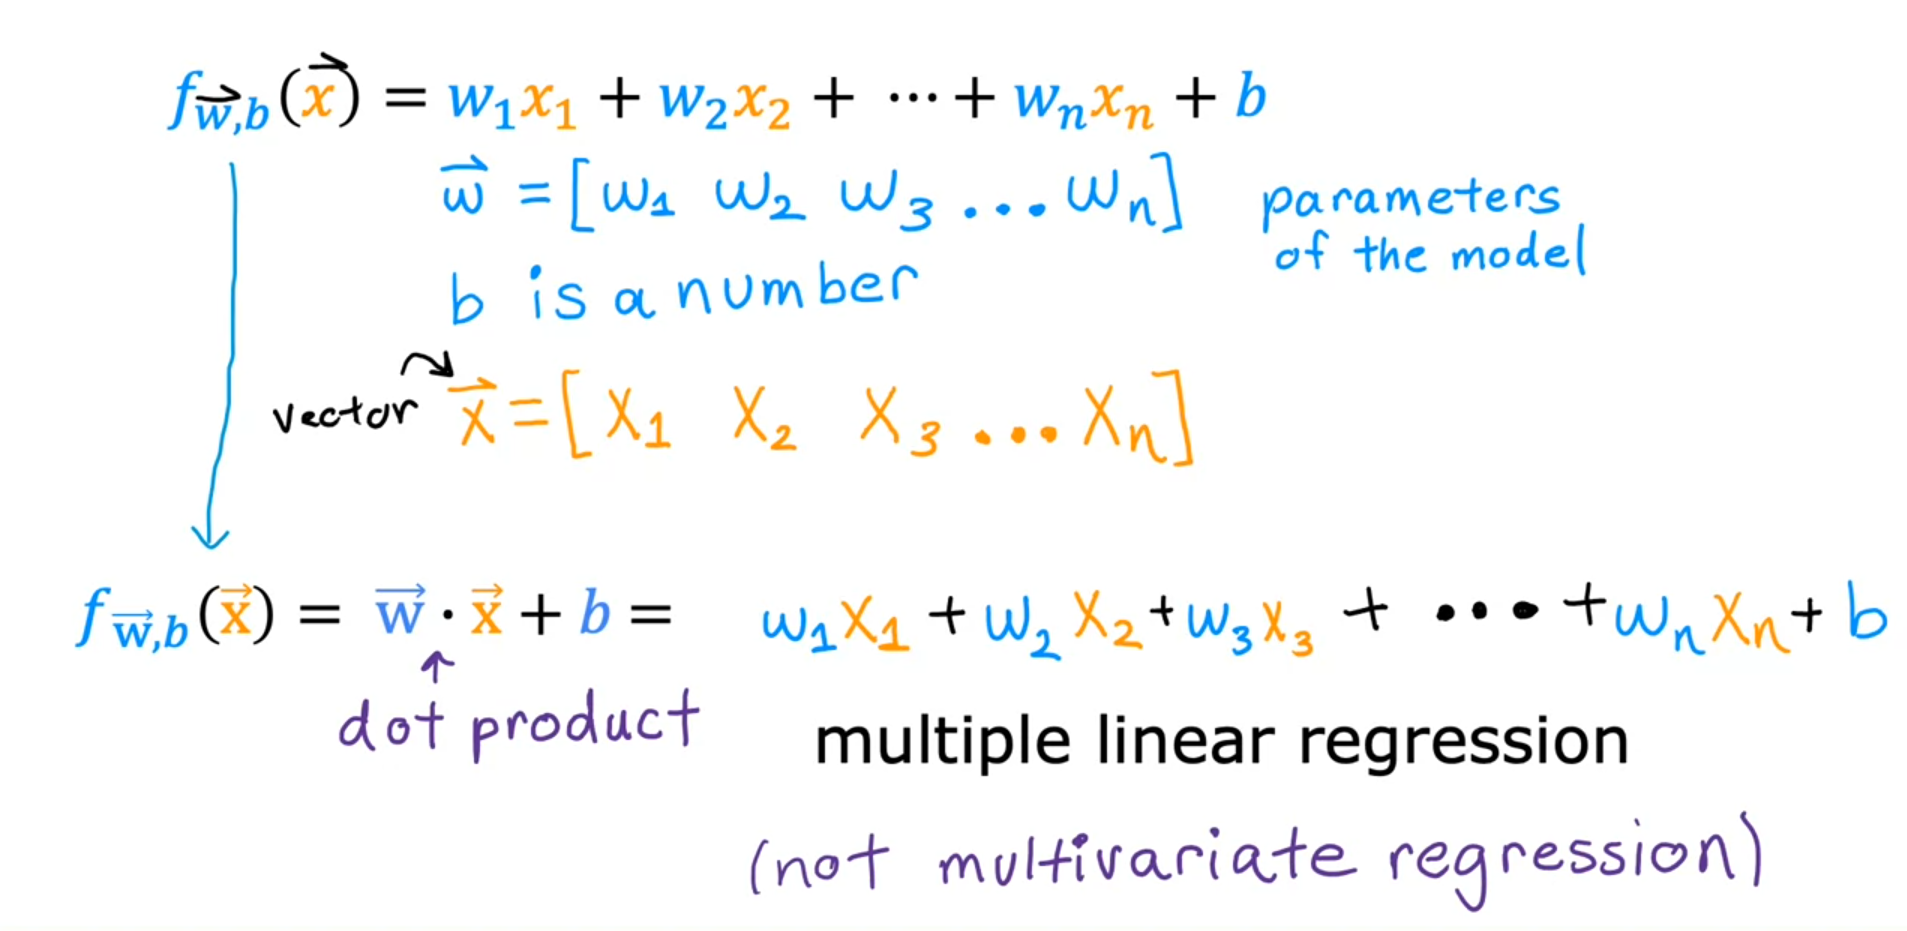 f_{\vec{w},b}(\vec{x}) = w_1x_1 + w_2x_2 + ⋯ + w_nx_n + b
\vec{w} = [w_1 w_2 w_3 ... w_n]
parameters
of the model
b is a number
vector \vec{x} = [x_1 x_2 x_3 ... x_n]
f_{\vec{w},b}(\vec{x}) = \vec{w} · \vec{x} + b = w_1x_1 + w_2x_2 + w_3x_3 + ... + w_nx_n + b
dot product
multiple linear regression
(not multivariate regression)